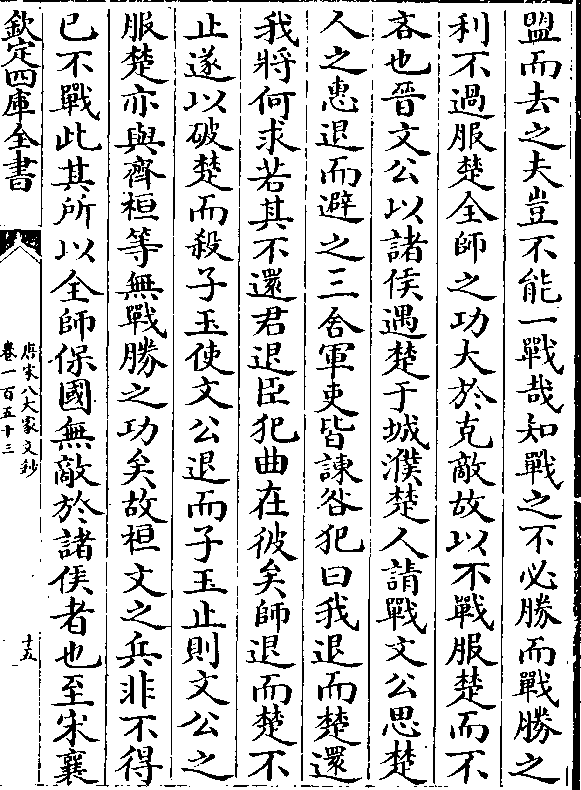 盟而去之夫豈不能一戰哉知戰之不必勝而戰勝之
利不過服楚全師之功大於克敵故以不戰服楚而不
吝也晉文公以諸侯遇楚于城濮楚人請戰文公思楚
人之惠退而避之三舍軍吏皆諫咎犯曰我退而楚還
我將何求若其不還君退臣犯曲在彼矣師退而楚不
止遂以破楚而殺子玉使文公退而子玉止則文公之
服楚亦與齊桓等無戰勝之功矣故桓文之兵非不得
已不戰此其所以全師保國無敵於諸侯者也至宋襄
欽定四庫全書
唐宋八大家文鈔
卷一百五十三
十五